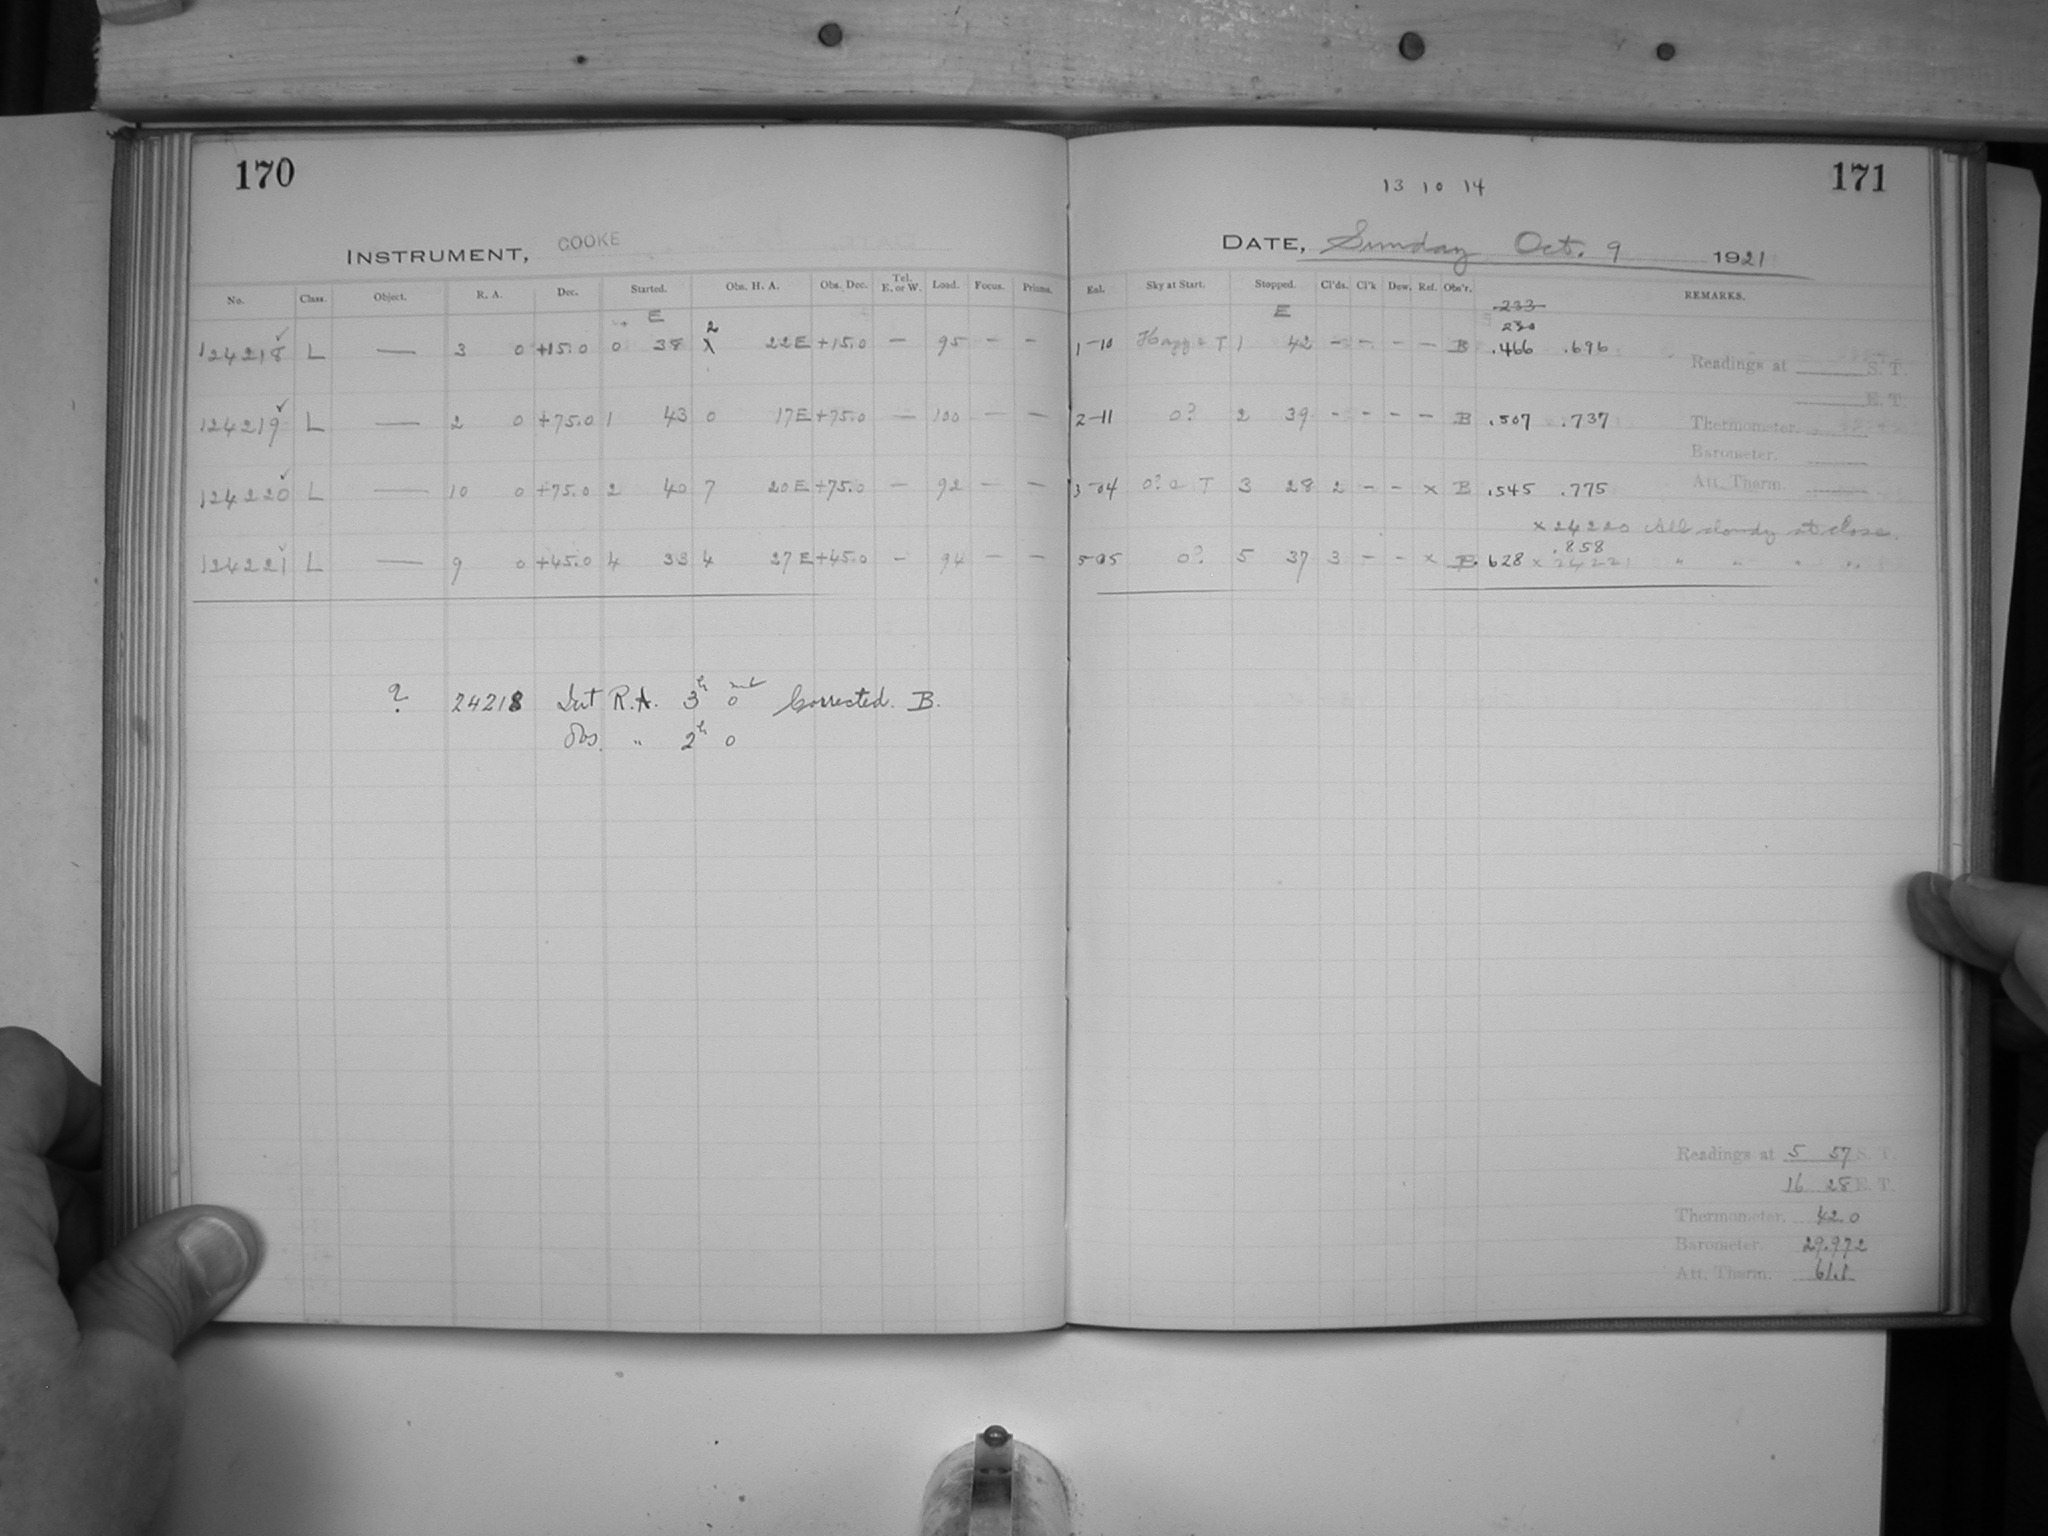 170
INSTRUMENT, COOKE
No. Class. Object. R. A. Dec. Started. Obs. H. A. Obs. Dec. Tel. E. or W. Load. Focus. Prisms.
E
2
124218 L — 3 0 +15.0 0 38 22E +15.0 — 95 — —
124219 L — 2 0 +75.0 1 43 0 17E +75.0 — 100 — —
124220 L — 10 0 +75.0 2 40 7 20E +75.0 — 92 — —
124221 L — 9 0 +45.0 4 33 4 27E +45.0 — 94 — —
? 24218 Int R.A. 3h 0 Corrected. B.
Obs. " 2h 0
171
13 10 14
DATE, Sunday Oct. 9 1921
Eal. Sky at Start. Stopped. Cl'ds. Cl'k Dew. Ref. Obs'r. REMARKS.
E
233
230
1-10 1 42 - - - - B .466 .696
Readings at S. T.
E. T.
2-11 0? 2 39 - - - - B .507 .737
Thermometer.
Barometer.
3-04 0? a T 3 28 2 - - x B .545 .775
Att. Therm.
x 24220 All cloudy at close.
.858
5-05 0? 5 37 3 - - x B .628 x 24221 " " " "
Readings at 5 57 S. T.
16 28 E. T.
Thermometer. 42.0
Barometer. 29.972
Att. Therm. 61.1